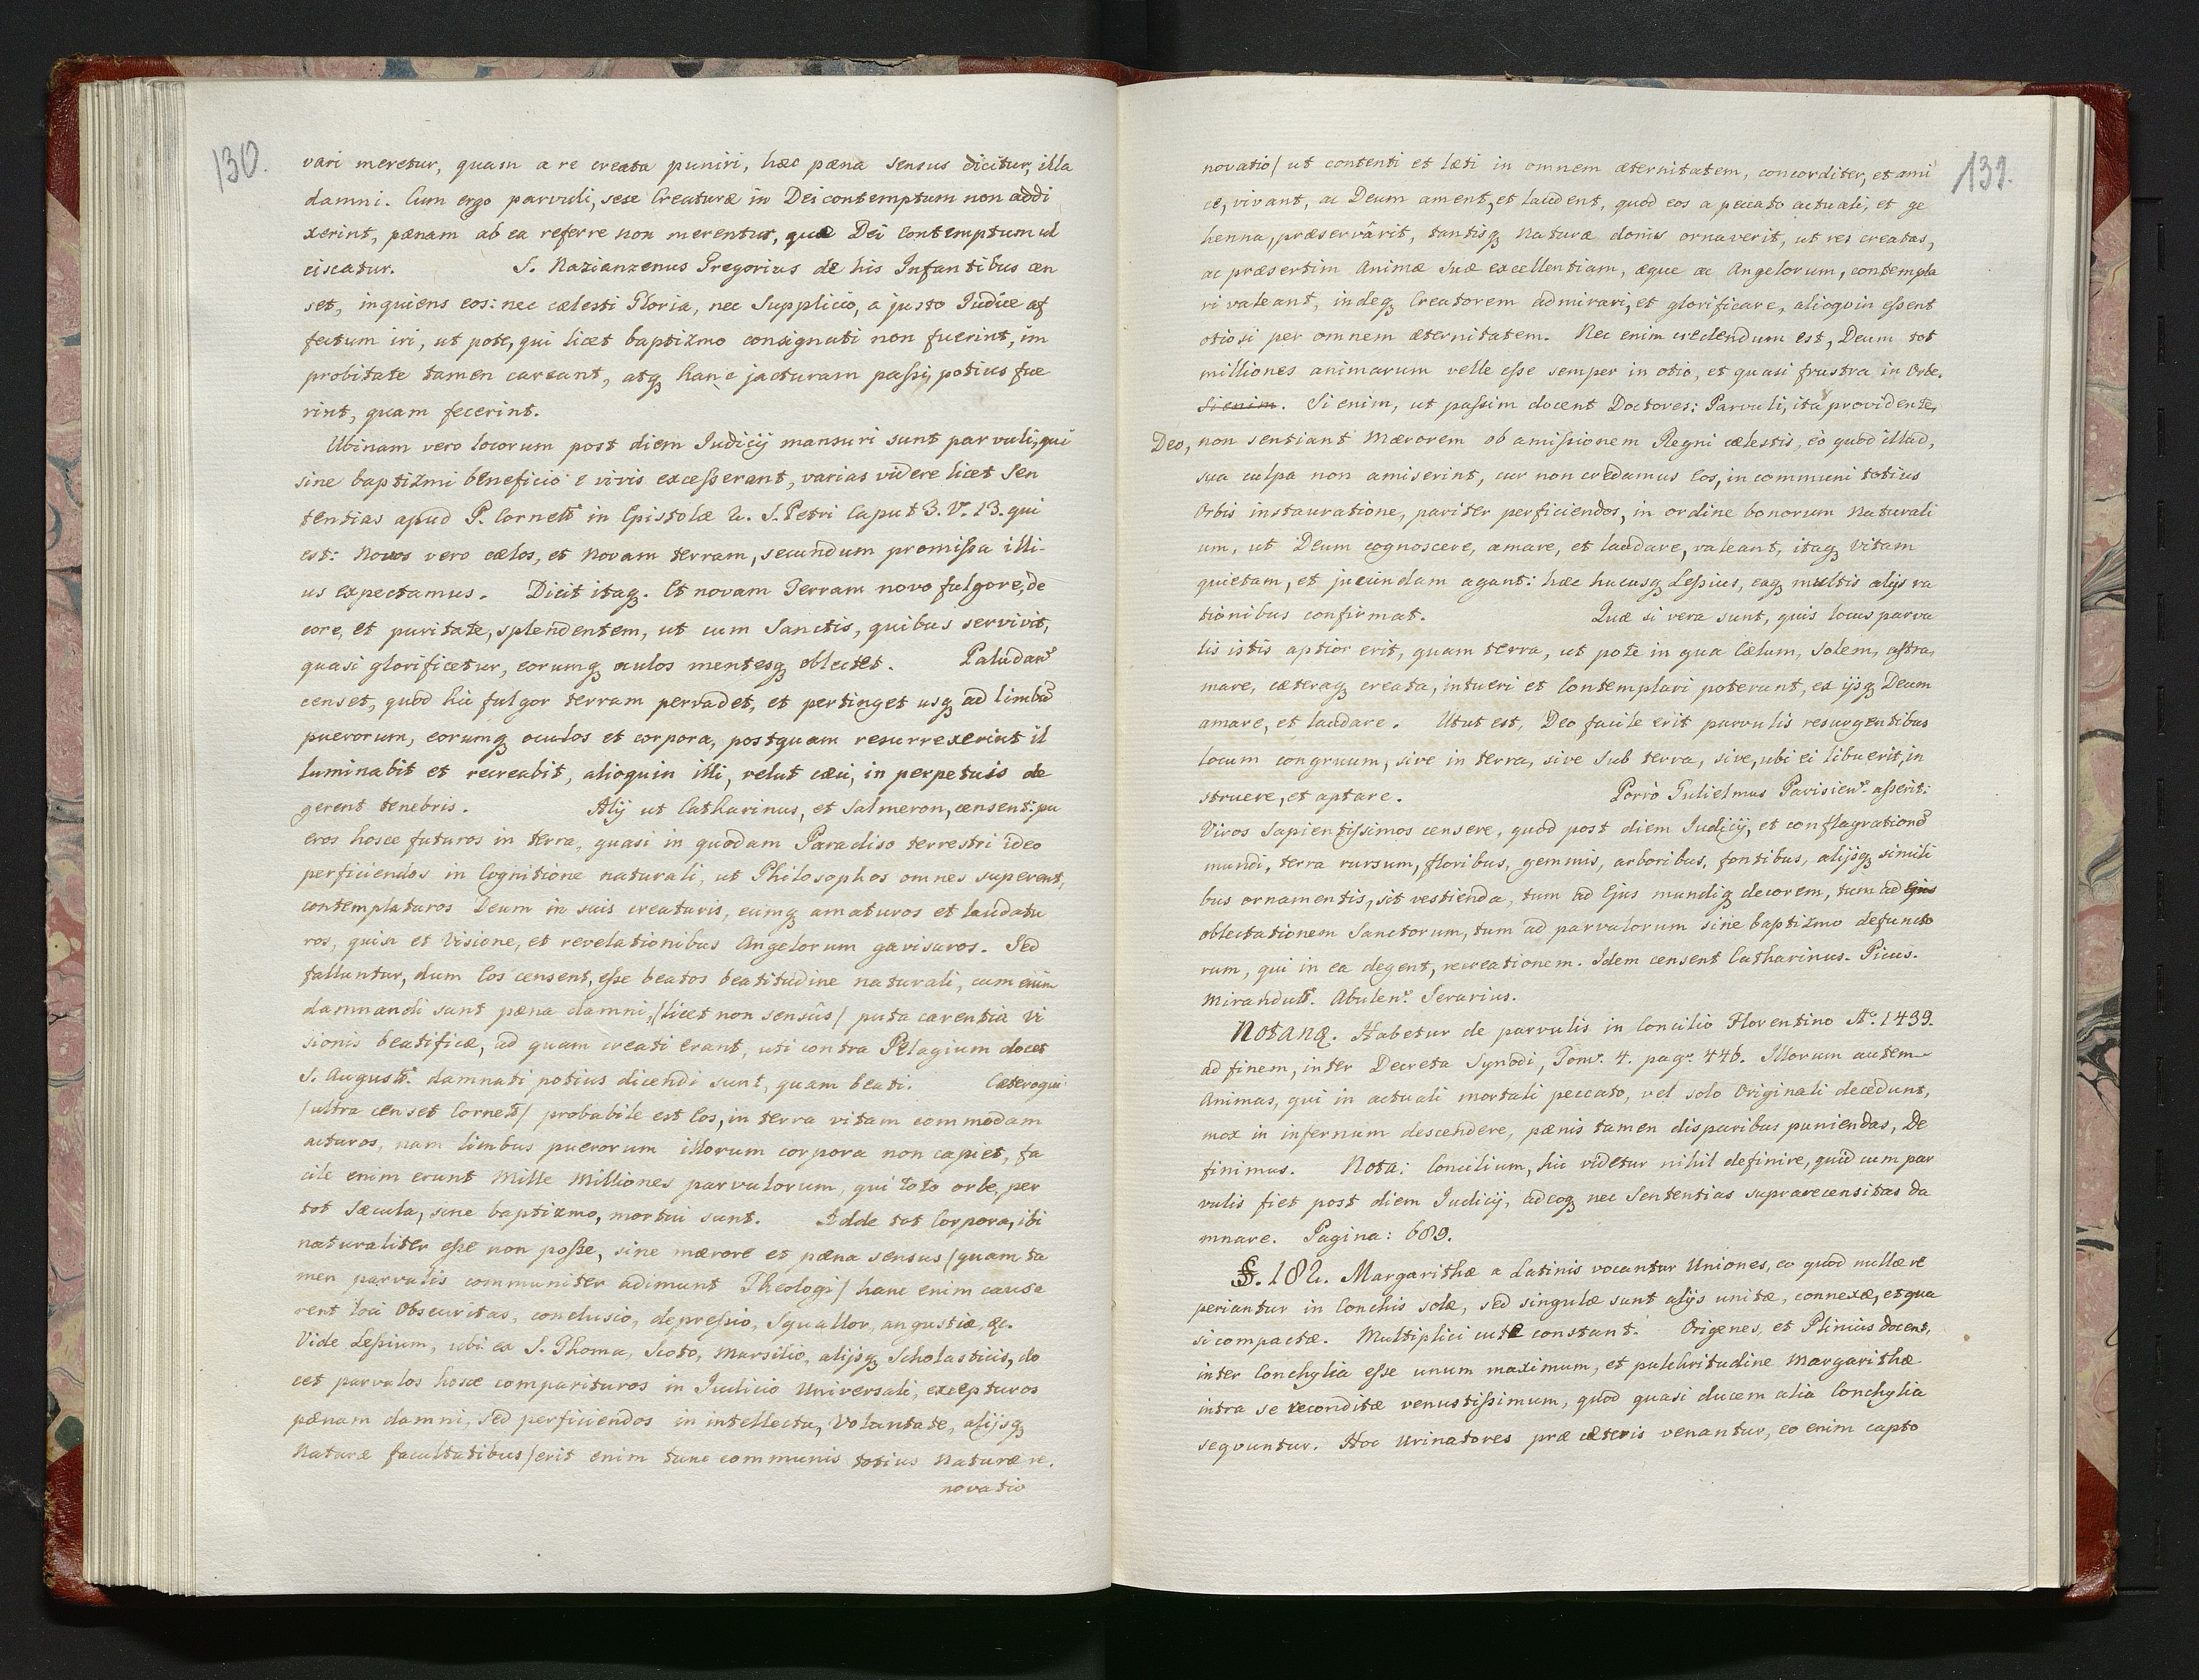 130.
vari meretur, quam a re creata puniri, hæc pæna sensus dicitur, illa
damni. Cum ergo parvuli, sese Creaturæ in Dei contemptum non addi
xerint, pænam ab ea referre non merentur, quæ Dei contemptum ul
ciscatur. S. Nazianzenus Gregorius de his Infantibus cen
set, inquiens eos: nec cælesti Gloria, nec Supplicio, a justo Iudice af
fectum iri, ut pote, qui licet baptizmo consignati non fuerint, im
probitate tamen careant, atq hanc jacturam passi, potius fue
rint, quam fecerint.
Ubinam vero locorum post diem Iudicij mansuri sunt parvuli, qui
sine baptizmi beneficio e vivis excesserant, varias videre licet Sen
tentias apud P. Cornel in Epistolæ 2. S. Petri Caput 3. V. 13. qui
est: Novos vero cælos, et Novam terram, secundum promissa illi-
us expectamus. Dicit itaq. Et novam Terram novo fulgore, de
core, et puritate, splendentem, ut cum Sanctis, quibus servivit,
quasi glorificetur, eorumq oculos mentesq oblectet. Paludan
censet, quod hic fulgor terram pervadet, et pertinget usq ad limbū
puerorum, eorumq oculos et corpora, postquam resurrexerint il
luminabit et recreabit, alioquin illi, velut cæci, in perpetuis de
gerent tenebris. Alij ut Catharinus, et Salmeron, censent: pu
eros hosce futuros in terra, quasi in quodam Paradiso terrestri ideo
perficiendos in Cognitione naturali, ut Philosophos omnes superent,
contemplaturos Deum in suis creaturis, eumq amaturos et laudatu
ros, quin et Visione, et revelationibus Angelorum gavisuros. Sed
falluntur, dum Eos censent, esse beatos beatitudine naturali, cum enim
damnandi sunt pæna damni, /licet non sensûs/ puta carentia vi
sionis beatificæ, ad quam creati erant, uti contra Pelagium docet
S. August. damnati potius dicendi sunt, quam beati. Cæteroqui
/ultra censet Cornel/ probabile est Eos, in terra vitam commodam
acturos, nam limbus puerorum illorum corpora non capiet, fa
cile enim erunt Mille Milliones parvulorum, qui toto orbe, per
tot Sæcula, sine baptizmo, mortui sunt. Adde tot Corpora, ibi
naturaliter esse non posse, sine mærore et pæna sensus /quam ta
men parvulis communiter adimunt Theologi/ hanc enim causa
rent loci Obscuritas, conclusio, depressio, Squallor, angustiæ, &c.
Vide Lessium, ubi ex S. Thoma, Scoto, Marsilio, alijsq Scholasticis, do
cet parvulos hosce comparituros in Iudicio Universali, excepturos
pænam damni, sed perficiendos in intellectu, Voluntate, alijsq
Naturæ facultatibus /erit enim tunc communis totius Naturæ re.
novatio
131.
novatio/ ut contenti et læti in omnem æternitatem, concorditer, et ami
ce, vivant, ac Deum ament, et laudent, quod eos a peccato actuali, et ge
henna, præservârit, tantisq Naturæ donis ornaverit, ut res creatas,
ac præsertim Animæ suæ excellentiam, æque ac Angelorum, contempla
ri valeant, indeq Creatorem admirari, et glorificare, alioquin essent
otiosi per omnem æternitatem. Nec enim credendum est, Deum tot
milliones animarum velle esse semper in otio, et quasi frustra in Orbe.
Si enim. Si enim, ut passim docent Doctores: Parvuli, ita providente,
Deo, non sentiant Mærorem ob amissionem Regni cælestis, eò quod illud,
sua culpa non amiserint, cur non credamus Eos, in communi totius
Orbis instauratione, pariter perficiendos, in ordine bonorum Naturali
um, ut Deum cognoscere, amare, et laudare, valeant, itaq Vitam
quietam, et jucundam agant: hæc hucusq Lessius, eaq multis alijs ra
tionibus confirmat. Quæ si vera sunt, quis locus parvu
lis istis aptior erit, quam terra, ut pote in qua Cælum, Solem, astra,
mare, cæteraq creata, intueri et Contemplari poterunt, ex ijsq Deum
amare, et laudare. Utut est, Deo facile erit parvulis resurgentibus
locum congruum, sive in terra, sive Sub terra, sive, ubi ei libuerit, in
struere, et aptare. Porrò Gulielmus Parisien. asserit:
Viros Sapientissimos censere, quod post diem Iudicij, et conflagrationē
mundi, terra rursum, floribus, gemmis, arboribus, fontibus, alijsq simili
bus ornamentis, sit vestienda, tum ad Ejus mundiq decorem, tum ad Ejus
oblectationem Sanctorum, tum ad parvulorum sine baptizmo defuncto
rum, qui in ea degent, recreationem. Idem censent Catharinus. Picus.
Mirandul. Abulen. Serarius.
Notanq. Habetur de parvulis in Concilio Florentino Ao. 1439.
ad finem, inter Decreta Synodi, Tom. 4. pag. 446. Illorum autem
Animas, qui in actuali mortali peccato, vel solo Originali decedunt,
mox in infernum descendere, pænis tamen disparibus puniendas, De
finimus. Nota: Concilium, hic videtur nihil definire, quid cum par
vulis fiet post diem Iudicij, adeoq nec Sententias suprarecensitas da
mnare. Pagina: 689.
§. 182. Margarithæ a Latinis vocantur Uniones, eo quod nullæ re
periantur in Conchis solæ, sed singulæ sunt alijs unitæ, connexæ, et qua
si compactæ. Multiplici cute constant. Origenes, et Plinius docent,
inter Conchylia esse unum maximum, et pulchritudine Margarithæ
intra se reconditæ venustissimum, quod quasi ducem alia Conchylia
seqvuntur. Hoc Urinatores præ cæteris venantur, eo enim capto